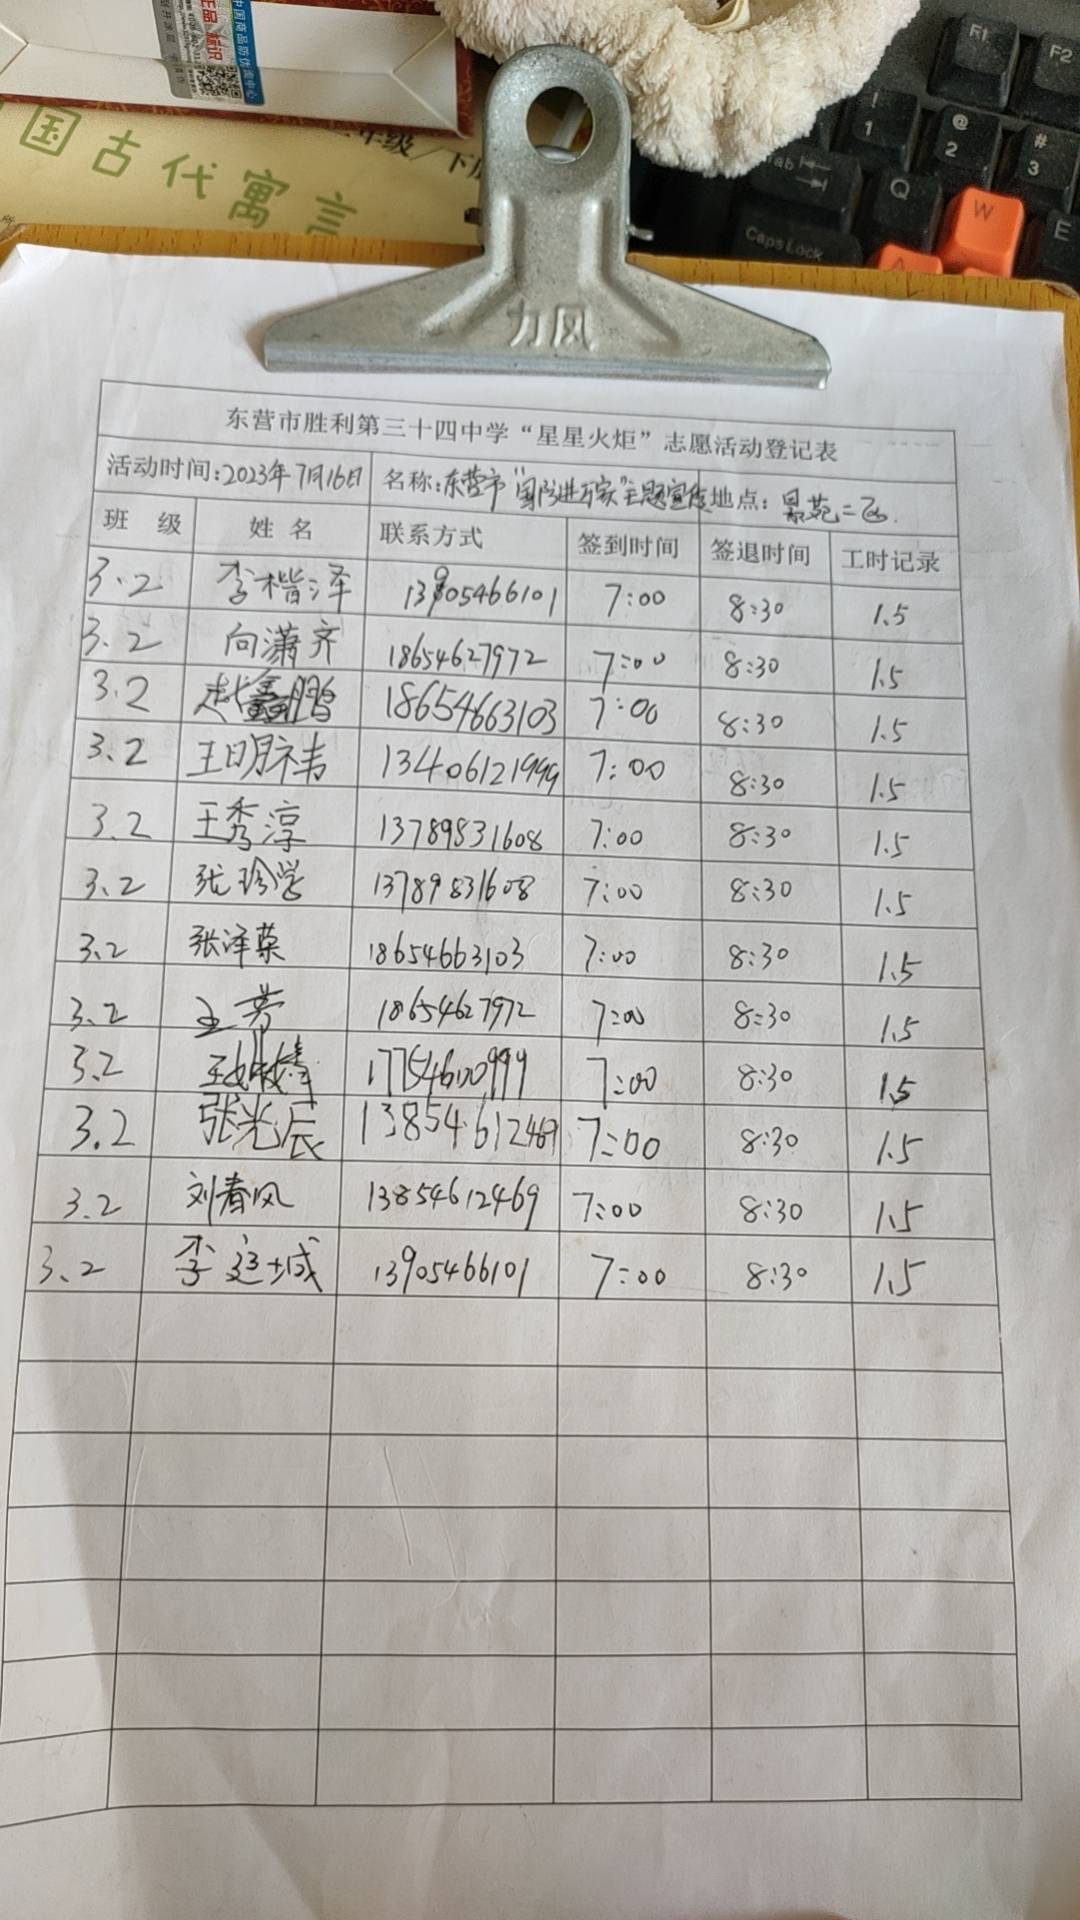 中国商品防伪中心
国古代寓言
年级/下册
F1
F2
! 1
@ 2
# 3
Tab
Q
W
E
Caps Lock
A
力风
东营市胜利第三十四中学“星星火炬”志愿活动登记表
活动时间:2023年7月16日 名称:东营市"国防进万家"主题宣传 地点:景苑二区.
班 级 姓 名 联系方式 签到时间 签退时间 工时记录
3.2 李楷泽 13905466101 7:00 8:30 1.5
3.2 向潇齐 18654627972 7:00 8:30 1.5
3.2 赵鑫鹏 18654663103 7:00 8:30 1.5
3.2 王明祎 13406121999 7:00 8:30 1.5
3.2 王秀淳 13789831608 7:00 8:30 1.5
3.2 张珍学 13789831608 7:00 8:30 1.5
3.2 张泽荣 18654663103 7:00 8:30 1.5
3.2 王芳 18654627972 7:00 8:30 1.5
3.2 17754600999 7:00 8:30 1.5
3.2 张光辰 13854612469 7:00 8:30 1.5
3.2 刘春风 13854612469 7:00 8:30 1.5
3.2 李延城 13905466101 7:00 8:30 1.5